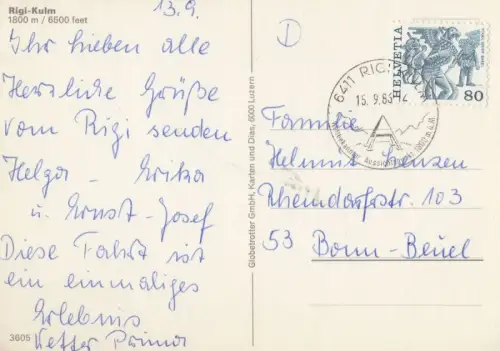 Rigi-Kulm
1800 m / 6500 feet
13.9.
Ihr lieben alle
Herzliche Grüße
vom Rigi senden
Helga - Erika
u. Ernst-Josef
Diese Fahrt ist
ein einmaliges
Erlebnis
Wetter Prima
3605
Globetrotter GmbH, Karten und Dias, 6000 Luzern
D
HELVETIA
80
6411 RIGI
15.9.86-12
1800 m ü.M.
Familie
Helmut Lenzen
Rheindorfstr. 103
53 Bonn-Beuel